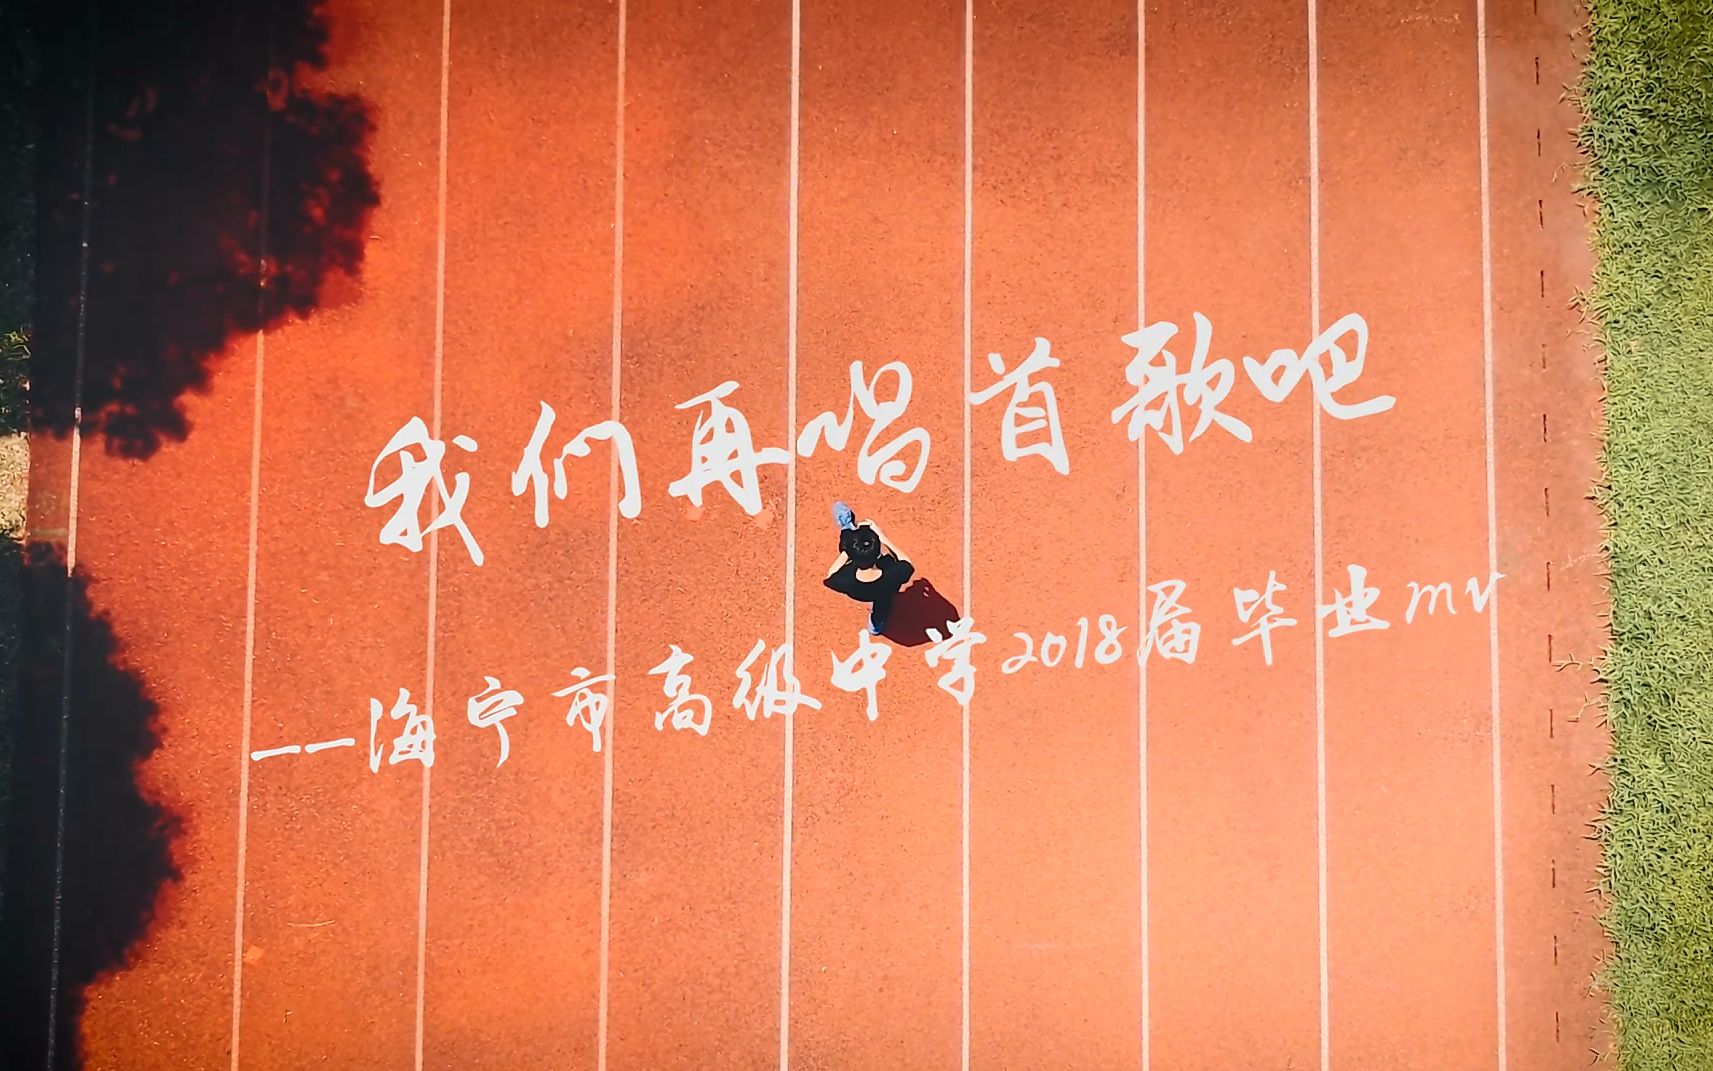 我们再唱首歌吧
——海宁市高级中学2018届毕业mv